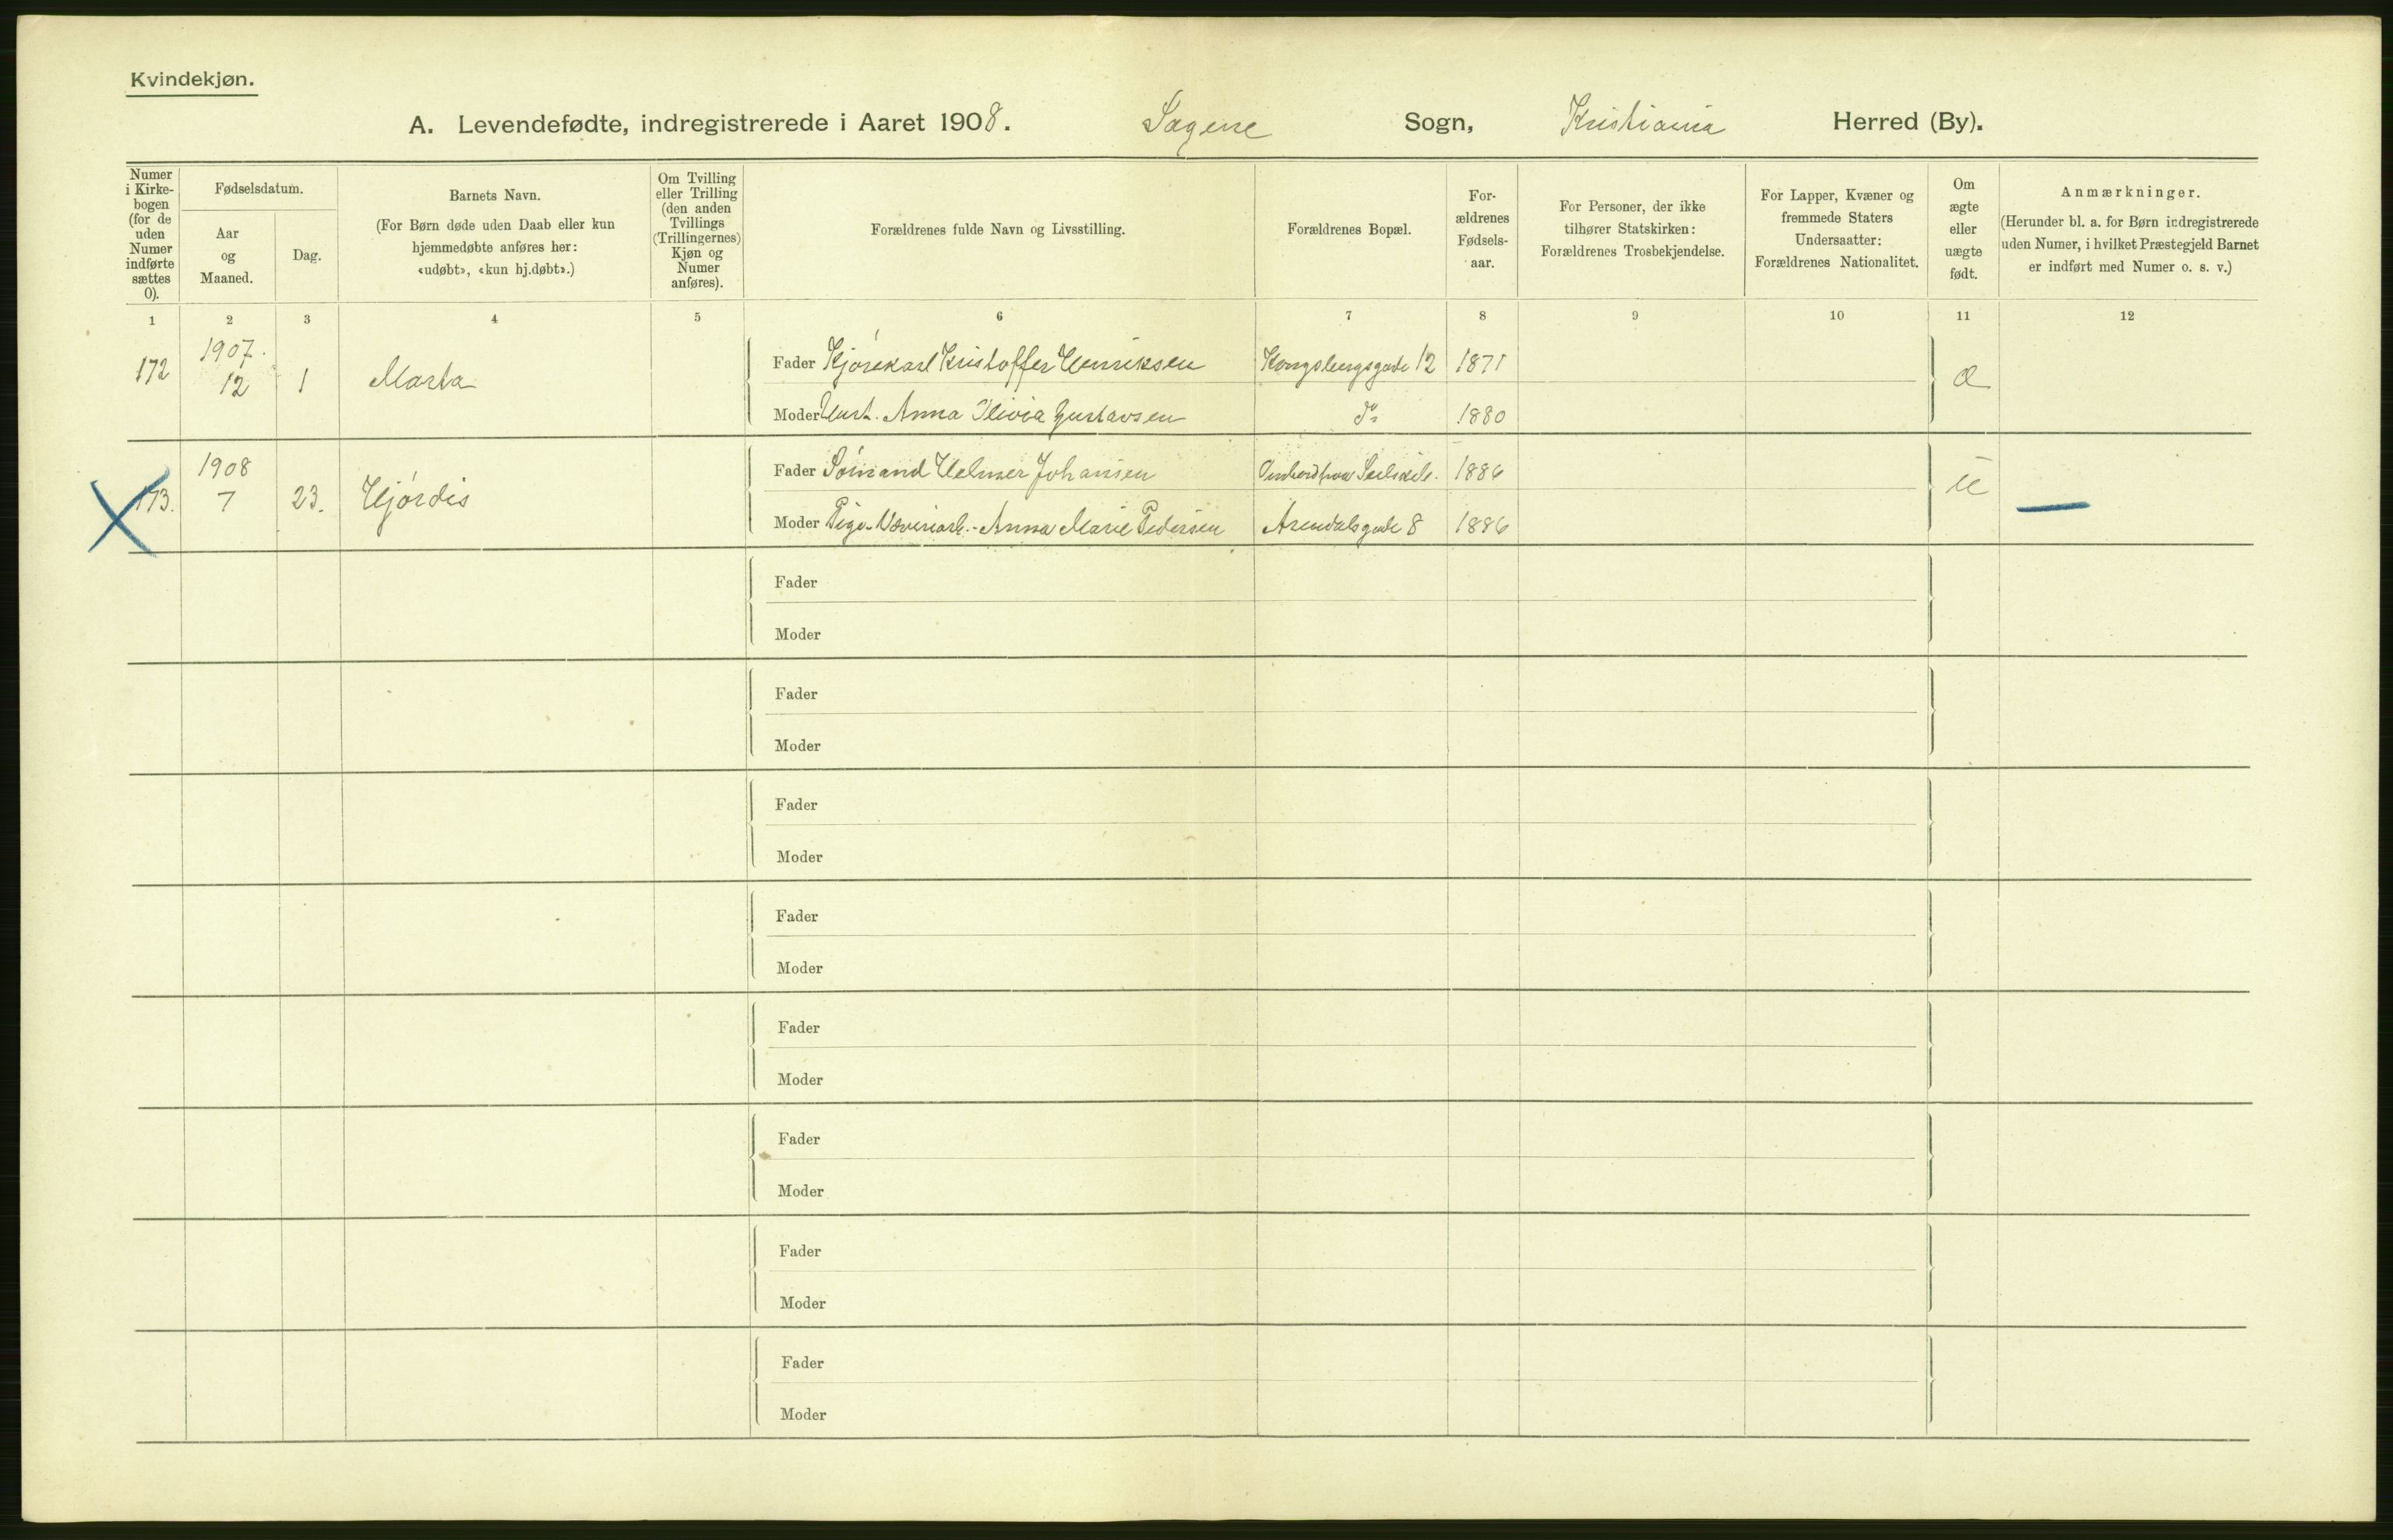 Kvindekjøn.
A. Levendefødte, indregistrerede i Aaret 1908. Sagene Sogn, Kristiania Herred (By).
Numer i Kirkebogen (for de uden Numer indførte sættes 0).
Fødselsdatum.
Aar og Maaned.
Dag.
Barnets Navn.
(For Børn døde uden Daab eller kun hjemmedøbte anføres her: «udøbt», «kun hj.døbt».)
Om Tvilling eller Trilling (den anden Tvillings (Trillingernes) Kjøn og Numer anføres).
Forældrenes fulde Navn og Livsstilling.
Forældrenes Bopæl.
Forældrenes Fødselsaar.
For Personer, der ikke tilhører Statskirken: Forældrenes Trosbekjendelse.
For Lapper, Kvæner og fremmede Staters Undersaatter: Forældrenes Nationalitet.
Om ægte eller uægte født.
Anmærkninger.
(Herunder bl. a. for Børn indregistrerede uden Numer, i hvilket Præstegjeld Barnet er indført med Numer o. s. v.)
1 2 3 4 5 6 7 8 9 10 11 12
172 1907. 12 1 Marta
Fader Kjørekarl Kristoffer Henriksen Kongsbergsgade 12 1871 æ
Moder Hust. Anna Olivia Gustavsen do 1880
173. 1908 7 23. Hjørdis
Fader Sømand Helmer Johansen Ombord paa 1886 u
Moder Pige - Væveriarb. - Anna Marie Pedersen Arendalsgade 8 1886
Fader
Moder
Fader
Moder
Fader
Moder
Fader
Moder
Fader
Moder
Fader
Moder
Fader
Moder
Fader
Moder